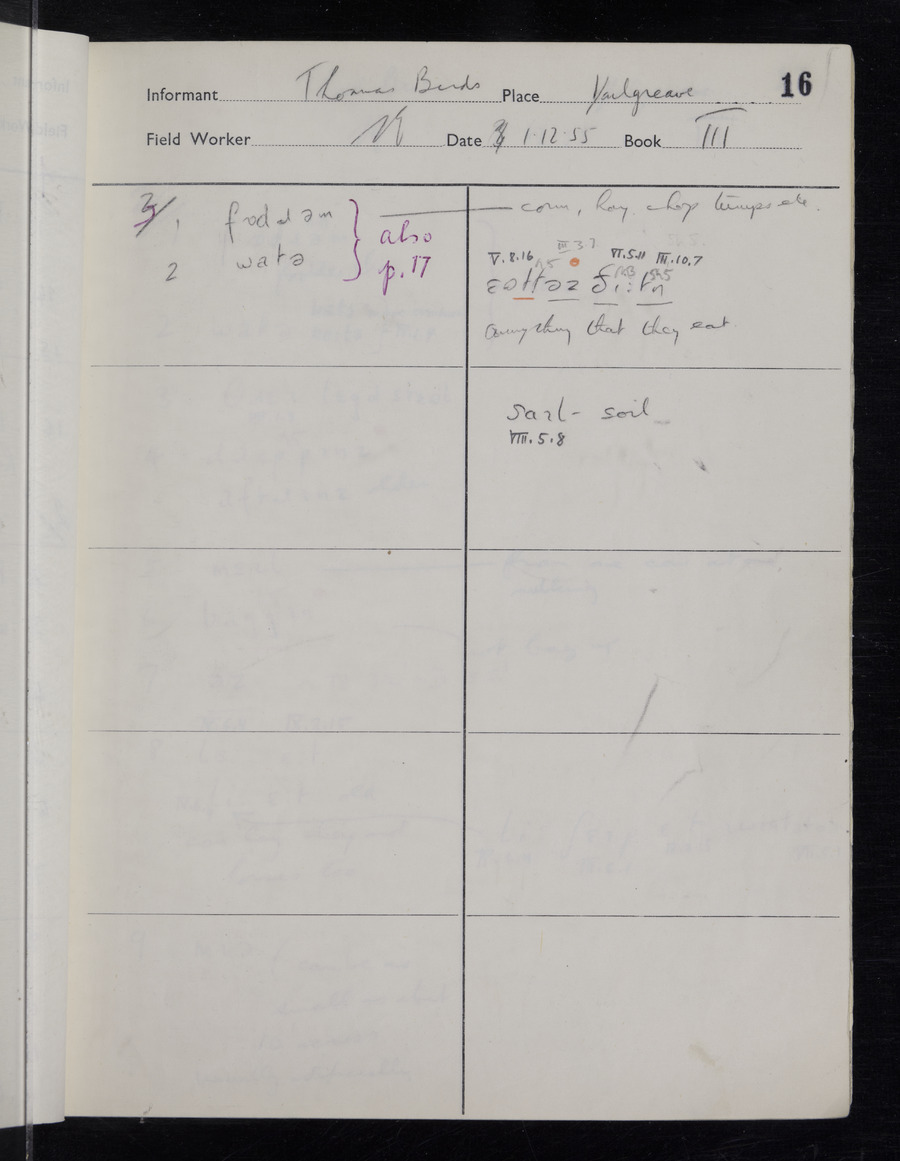 16
Informant Thomas Birds Place Youlgreave
Field Worker Date 1.12.55 Book III
3/ 1 fɒdəm
2 watə
also
p.17
corn, hay, chop turnips etc.
III 3 7
V.8.16 VI.5.11 III.10.7
anything that they eat
saɪl - soil
VIII.5.8